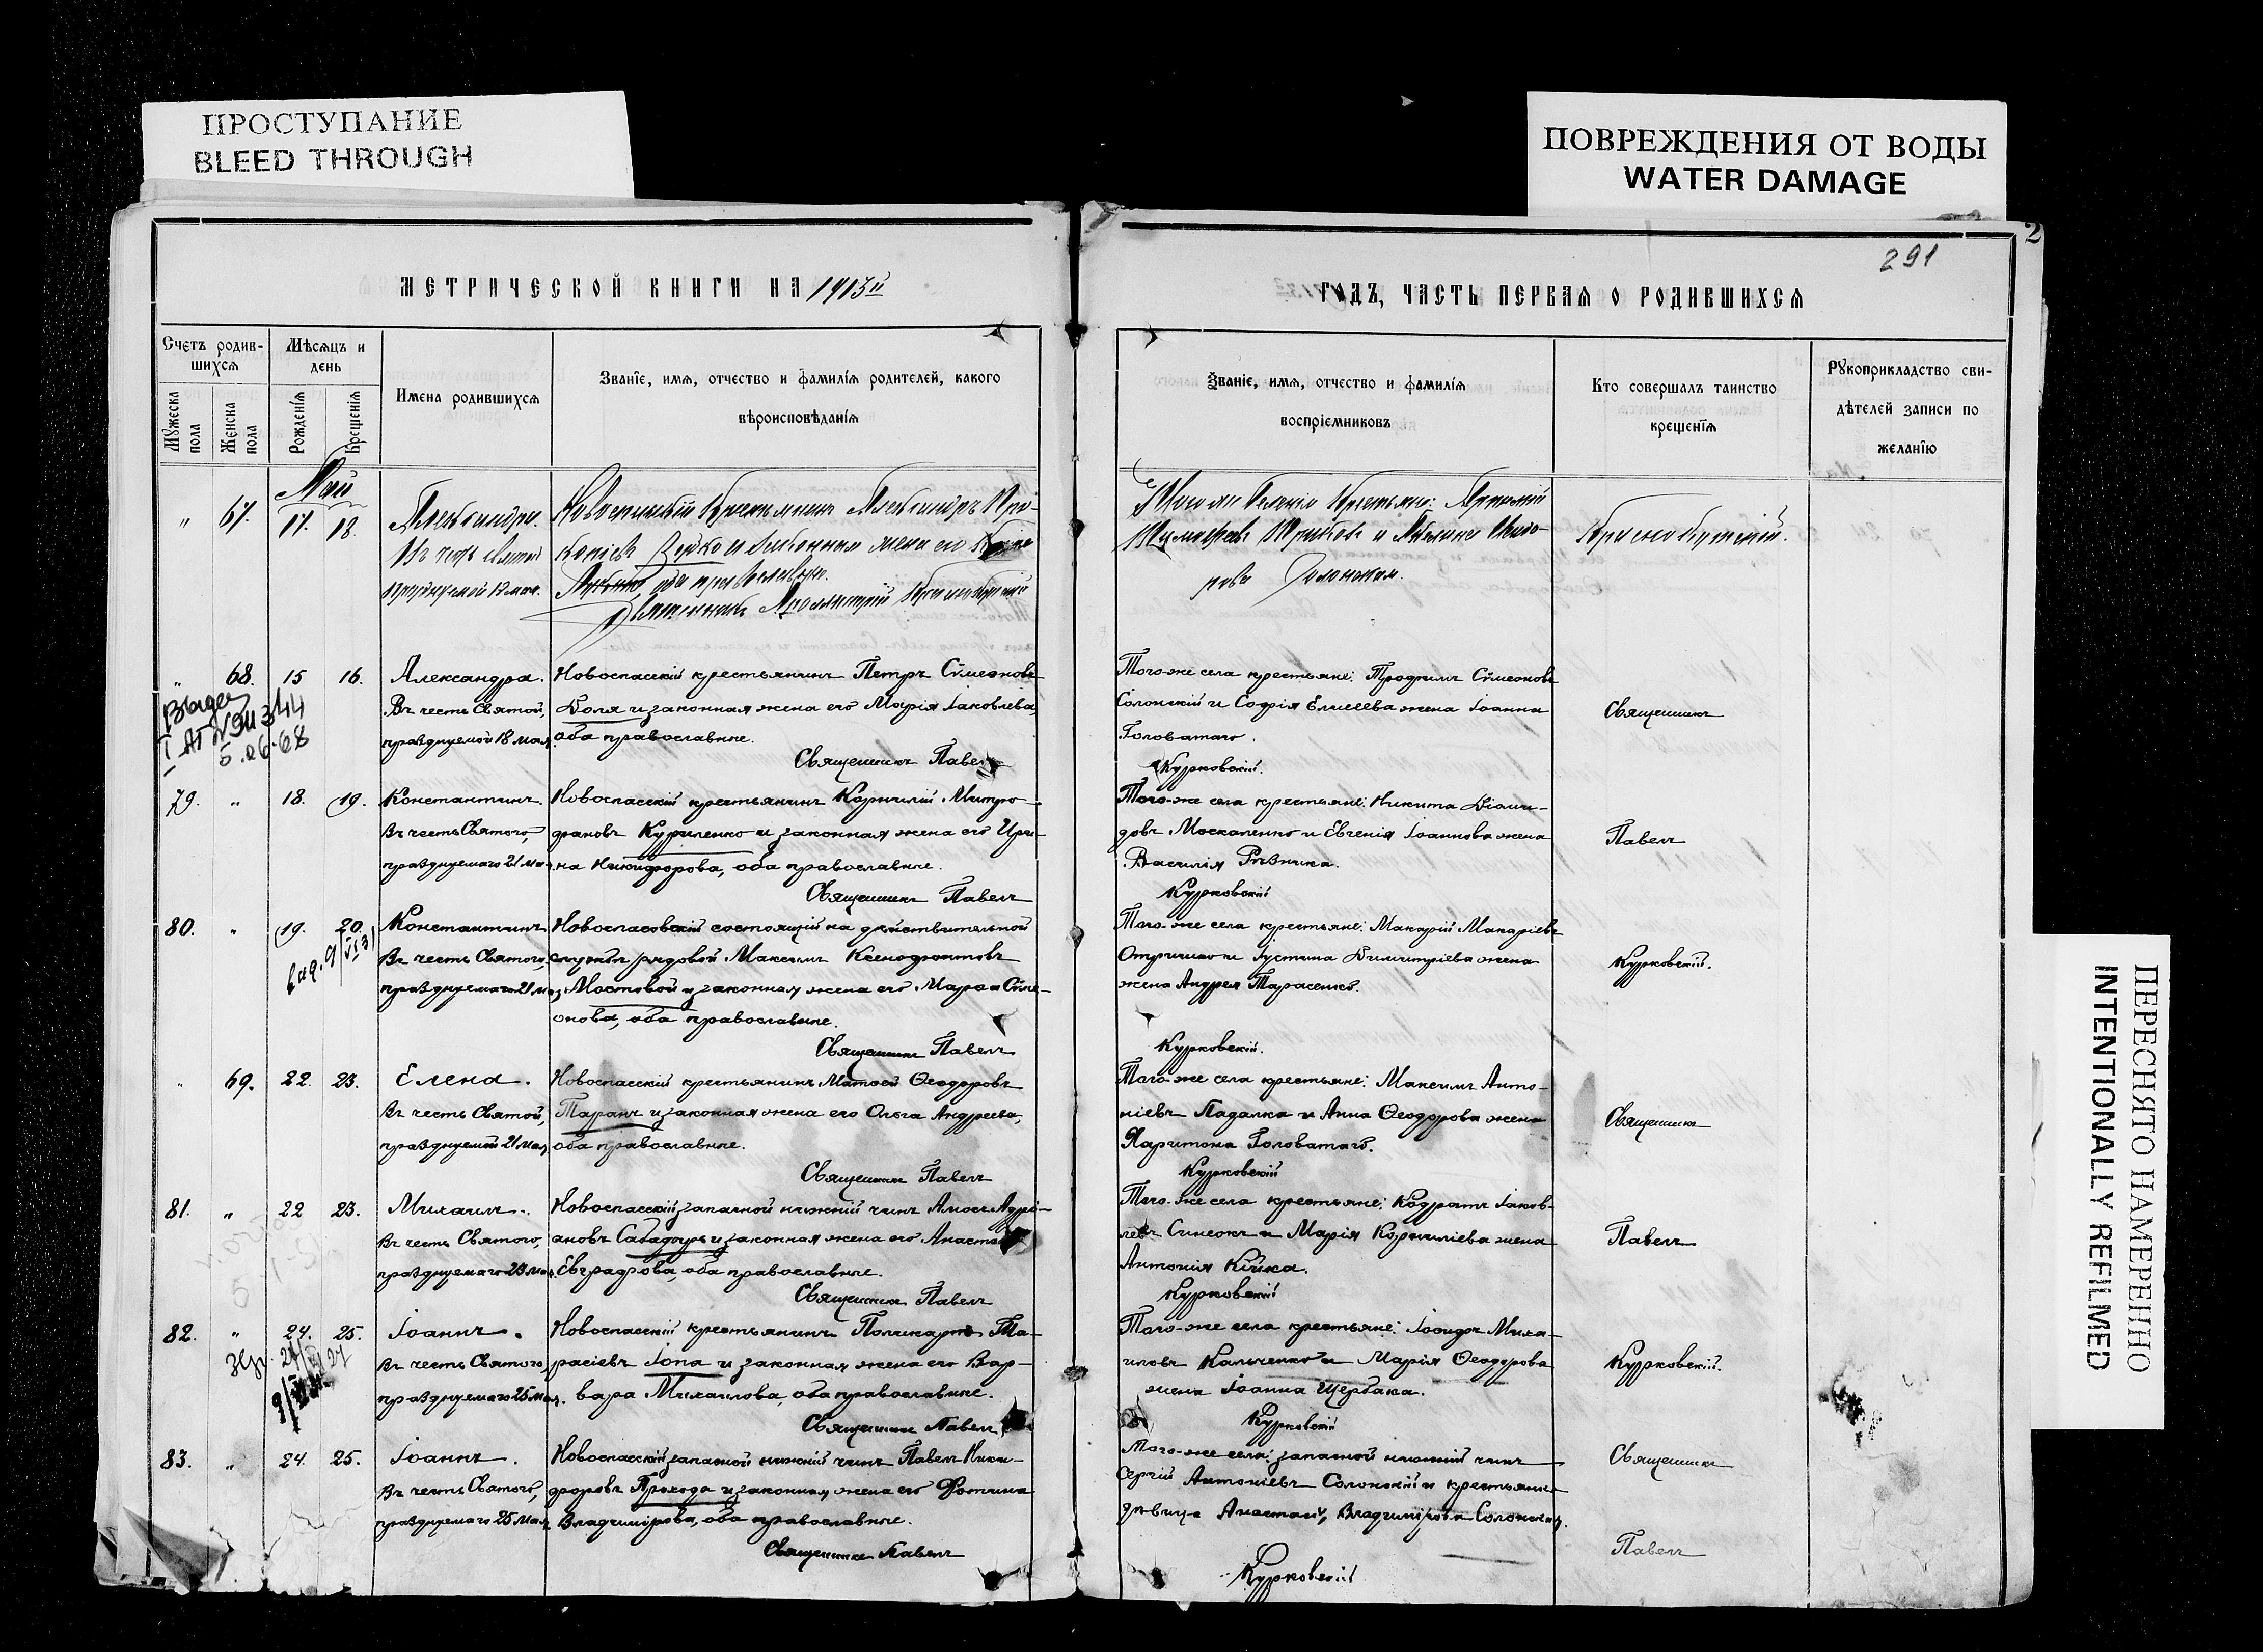 ПРОСТУПАНИЕ
BLEED THROUGH
ПОВРЕЖДЕНИЯ ОТ ВОДЫ
WATER DAMAGE
ПЕРЕСНЯТО НАМЕРЕННО
INTENTIONALLY REFILMED
2
291
МЕТРИЧЕСКОЙ КНИГИ НА 1913й
ГОДЪ, ЧАСТЬ ПЕРВАЯ О РОДИВШИХСЯ
Счетъ родив-
шихся
Мѣсяцъ и
день
Мужеска пола
Женска пола
Рожденія
Крещенія
Имена родившихся
Званіе, имя, отчество и фамилія родителей, какого
вѣроисповѣданія
Званіе, имя, отчество и фамилія
воспріемниковъ
Кто совершалъ таинство
крещенія
Рукоприкладство сви-
дѣтелей записи по
желанію
Май
" 67. 17. 18. Александра.
Въ честь святой
Новоспасскій крестьянинъ Александръ Про-
и законная жена его
оба православные.
Священникъ
" 68. 15 16. Александра.
Въ честь Святой,
празднуемой 18 мая.
Новоспасскій крестьянинъ Петръ Сѵмеоновъ
Доля и законная жена его Марія Іаковлева,
оба православные.
Священникъ Павелъ
Того-же села крестьяне: Трофимъ Сѵмеоновъ
Солонскій и Софія Елисеева жена Іоанна
Головатаго.
Курковскій.
Священникъ
79. " 18. 19. Константинъ.
Въ честь Святого,
празднуемаго 21 мая.
Новоспасскій крестьянинъ Корнилій Митро-
фановъ Куриленко и законная жена его Ири-
на Никифорова, оба православные.
Священникъ Павелъ
Того-же села крестьяне: Никита Діоми-
довъ Москаленко и Евгенія Іоаннова жена
Василія Рѣзника.
Курковскій
Павелъ
80. " 19. 20. Константинъ
Въ честь Святого,
празднуемаго 21 мая.
Новоспасовскій состоящій на дѣйствительной
службѣ рядовой Максимъ Ксенофонтовъ
Мостовой и законная жена его Марѳа Сѵме-
онова, оба православные.
Священникъ Павелъ
Того-же села крестьяне: Макарій Макаріевъ
Отришко и Іустина Димитріева жена
жена Андрея Тарасенко.
Курковскій.
Курковскій.
" 69. 22. 23. Елена.
Въ честь Святой,
празднуемой 21 мая,
Новоспасскій крестьянинъ Матѳей Ѳеодоровъ
Таранъ и законная жена его Ольга Андреева,
оба православные.
Священникъ Павелъ
Того-же села крестьяне: Максимъ Анто-
ніевъ Падалка и Анна Ѳеодорова жена
Харитона Головатаго.
Курковскій
Священникъ
81. " 22 23. Михаилъ.
Въ честь Святого,
празднуемаго 23 мая.
Новоспасскій запасной нижній чинъ Амосъ Адрі-
ановъ Сабадырь и законная жена его
Евграфова, оба православные.
Священникъ Павелъ
Того-же села крестьяне: Кодратъ Іаков-
левъ Синеокъ и Марія Корниліева жена
Антонія Кійка.
Курковскій
Павелъ
82. " 24. 25. Іоаннъ.
Въ честь Святого,
празднуемаго 25 мая.
Новоспасскій крестьянинъ Поликарпъ Та-
расіевъ Іопа и законная жена его Вар-
вара Михаилова, оба православные.
Священникъ Павелъ
Того-же села крестьяне: Исидоръ Миха-
иловъ Кальченко и Марія Ѳеодорова
жена Іоанна Щербака.
Курковскій
Курковскій.
83. " 24. 25. Іоаннъ.
Въ честь Святого,
празднуемаго 25 мая,
Новоспасскій запасной нижній чинъ Павелъ Ники-
форовъ Прохода и законная жена его Фотина
Владимірова, оба православные.
Священникъ Павелъ
Того-же села: запасной нижній чинъ
Сергій Антоніевъ Солонскій и крестьянка
дѣвица Анастасія Владимірова Солонская.
Курковскій
Священникъ
Павелъ